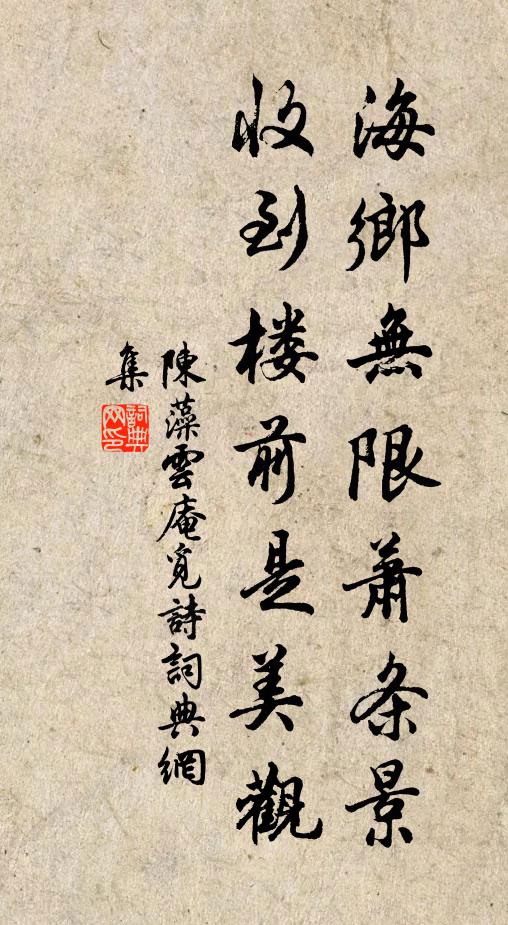 海鄉無限蕭条景
收到楼前是美觀
陳藻雲庵覓詩詞典網
集
詞典
网印